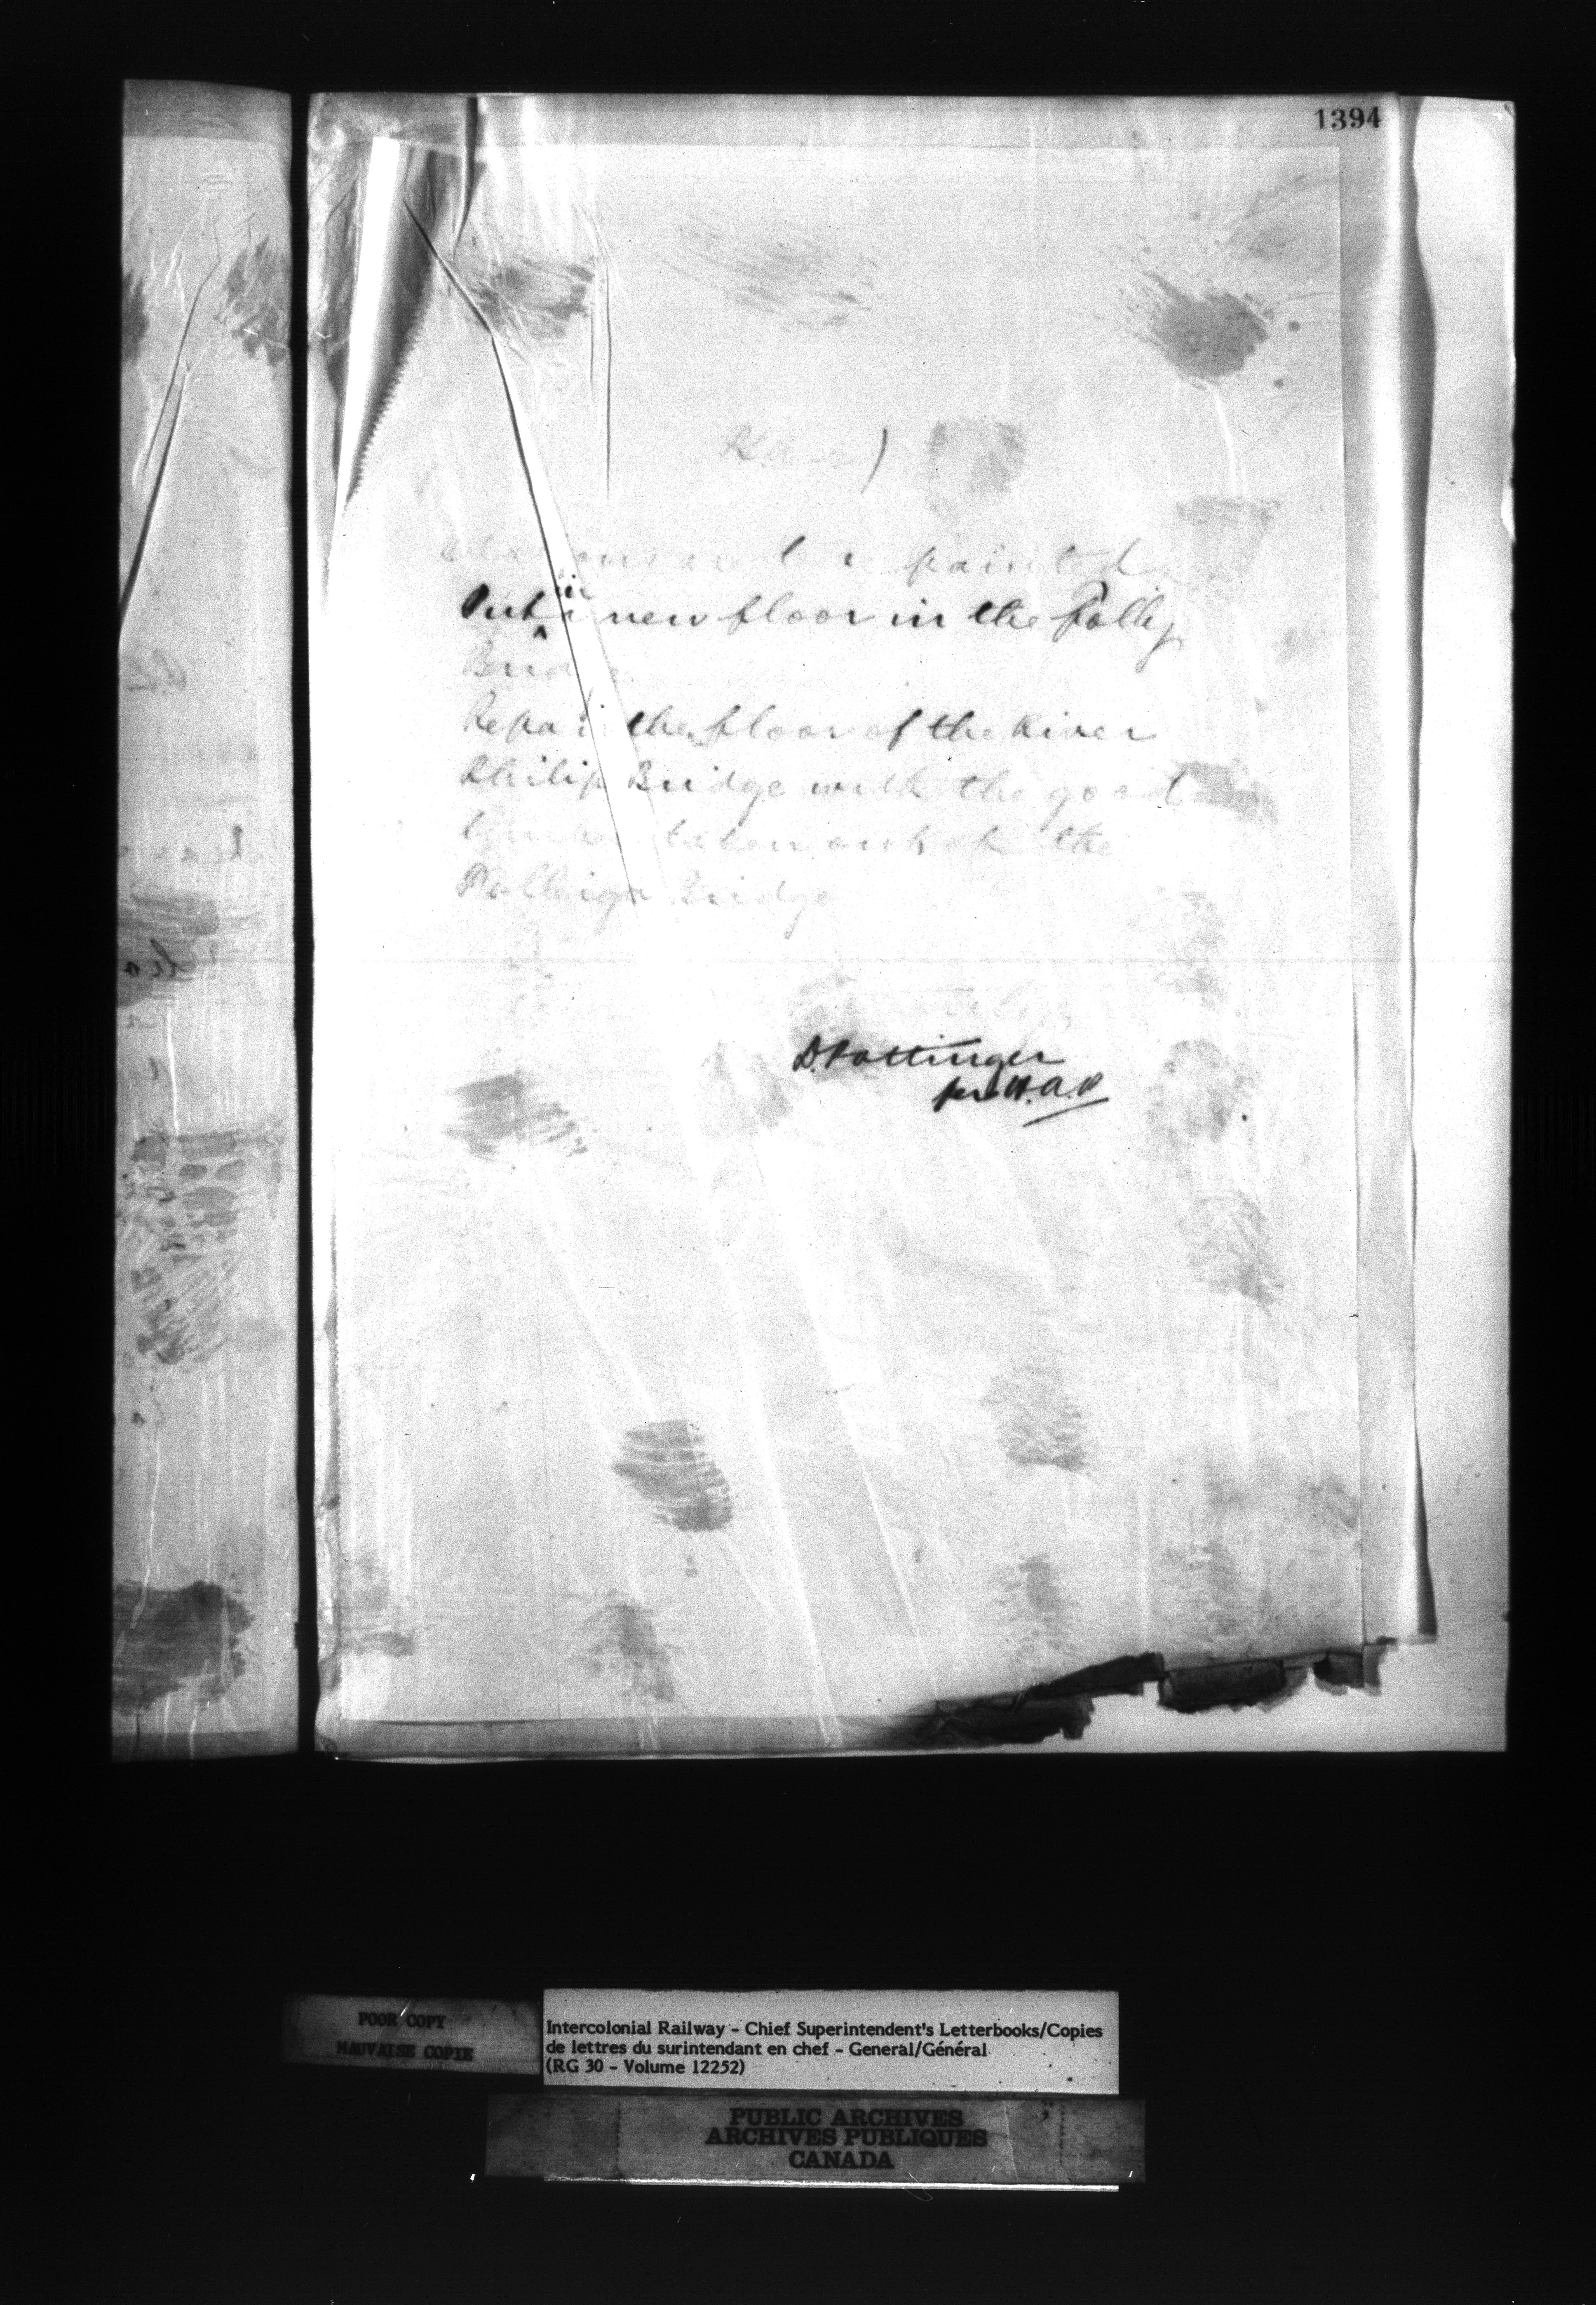 1394
painted
Put in a new floor in the Folly
Bridge
Repair the floor of the River
Philip Bridge with the good
taken out of the
Bridge
D. Pottinger
per W.A.D
POOR COPY
MAUVAISE COPIE
Intercolonial Railway - Chief Superintendent's Letterbooks/Copies
de lettres du surintendant en chef - General/Général
(RG 30 - Volume 12252)
PUBLIC ARCHIVES
ARCHIVES PUBLIQUES
CANADA